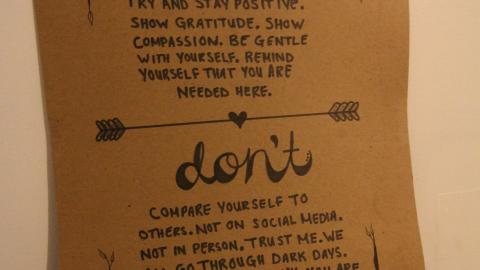 TRY AND STAY POSITIVE.
SHOW GRATITUDE. SHOW
COMPASSION. BE GENTLE
WITH YOURSELF. REMIND
YOURSELF THAT YOU ARE
NEEDED HERE.
don't
COMPARE YOURSELF TO
OTHERS. NOT ON SOCIAL MEDIA.
NOT IN PERSON. TRUST ME. WE
ALL GO THROUGH DARK DAYS.
YOU ARE